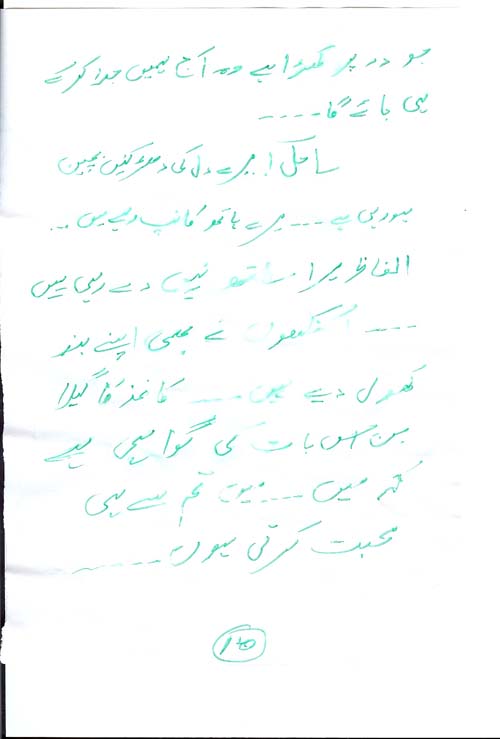 جو در پر کھڑا ہے وہ آج ہمیں جدا کر کے
ہی جائے گا ----
ساحل! میرے دل کی دھڑکنیں بے چین
ہو رہی ہے --- میرے ہاتھ کانپ رہے ہیں ...
الفاظ میرا ساتھ نہیں دے رہے ہیں
--- آنکھوں نے بھی اپنے بند
کھول دیے ہیں --- کاغذ کا گیلا
پن اس بات کی گواہی ہے
کہ میں --- میں تم سے ہی
محبت کرتی ہوں ------